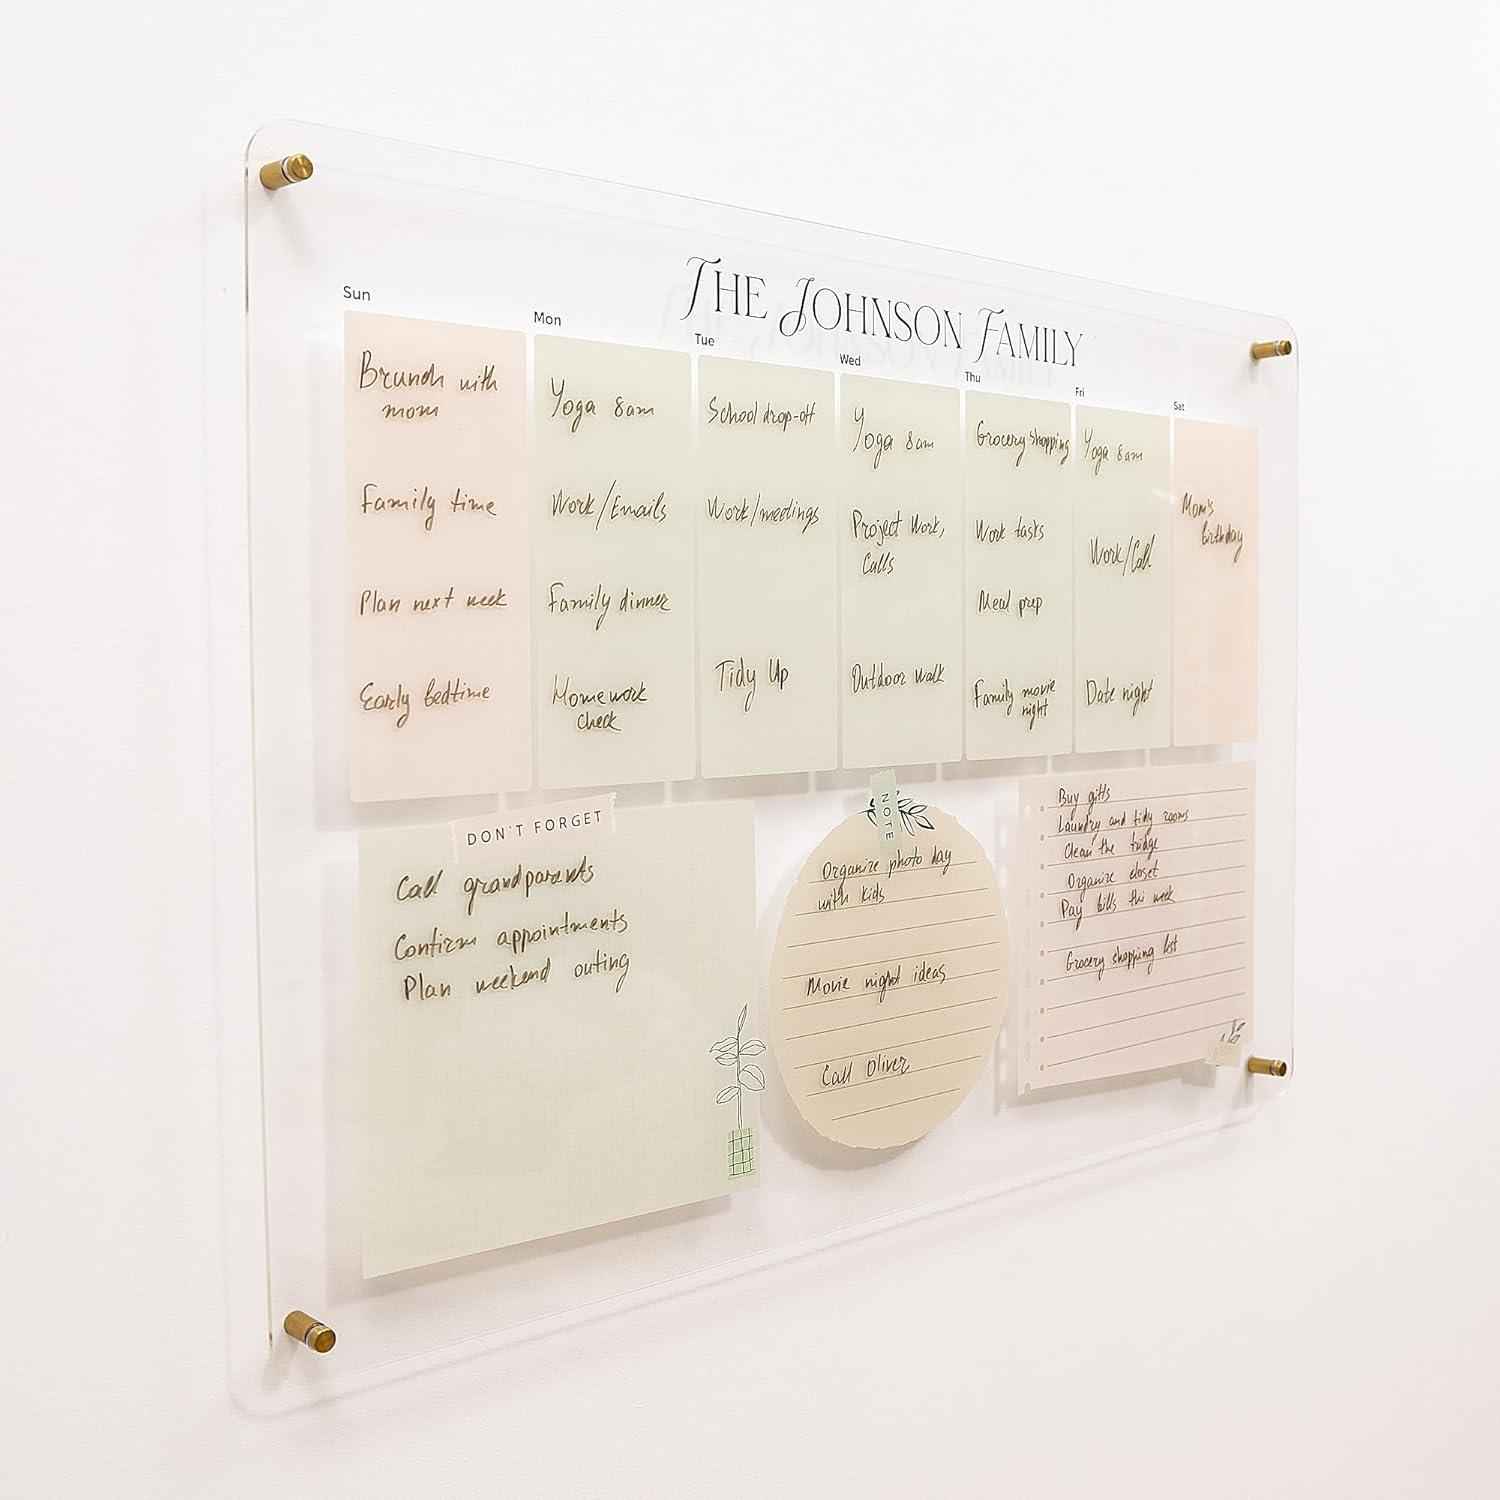 THE JOHNSON FAMILY
Sun
Brunch with
mom
Family time
Plan next week
Early bedtime
Mon
Yoga 8am
Work/Emails
Family dinner
Homework
check
Tue
School drop-off
Work/meetings
Tidy Up
Wed
Yoga 8am
Project Work,
Calls
Outdoor walk
Thu
Grocery shopping
Work tasks
Meal prep
Family movie
night
Fri
Yoga 8am
Work/Call
Date night
Sat
Mom's
birthday
DON'T FORGET
Call grandparents
Confirm appointments
Plan weekend outing
NOTE
Organize photo day
with kids
Movie night ideas
Call Oliver
Buy gifts
Laundry and tidy rooms
Clean the fridge
Organize closet
Pay bills this week
Grocery shopping list